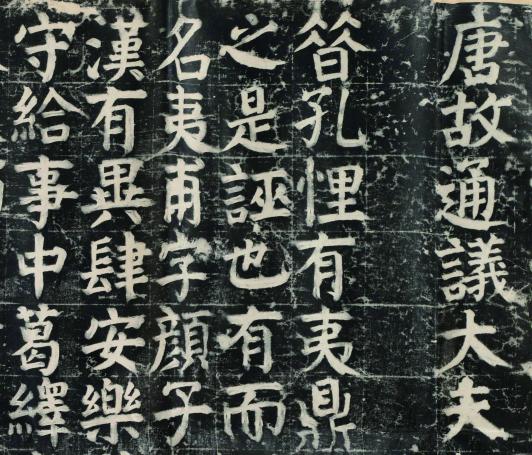 唐故通議大夫
昔孔悝有夷鼎
之是誣也有而
名夷甫字顏子
漢有異肆安樂
守給事中葛繹